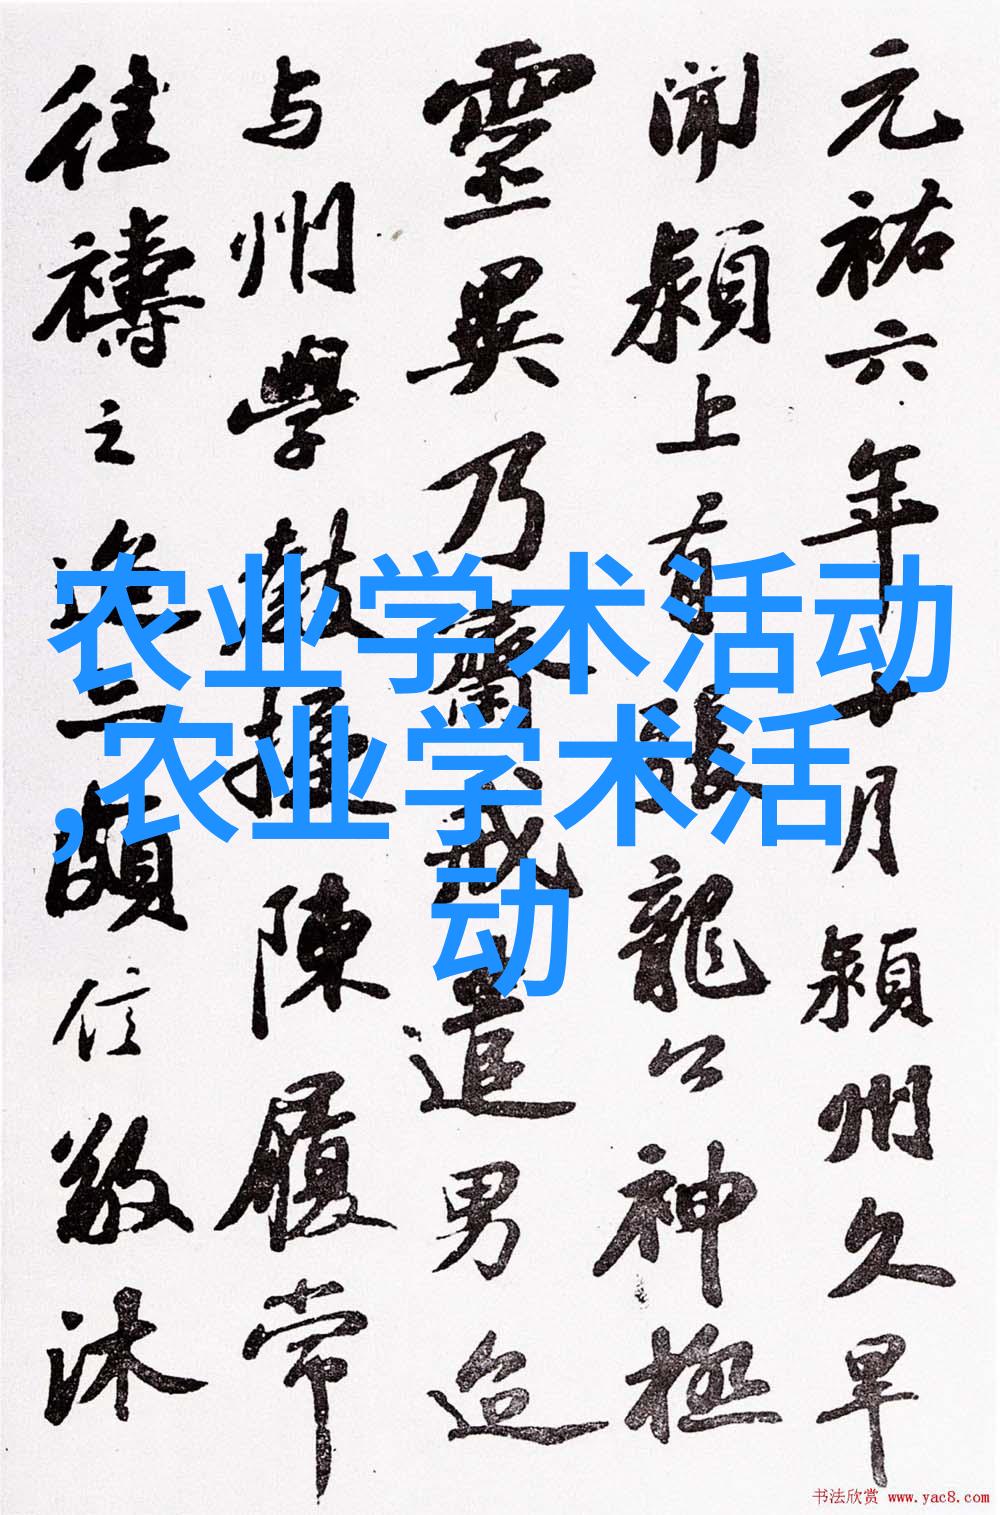 元祐六年十月潁州久旱
聞潁上有張龍公神極
靈異乃齋戒遣男迨
与州學教授陳履常
往禱之迨亦頗信敬沐
农业学术活动
,农业学术活
动
书法欣赏 www.yac8.com